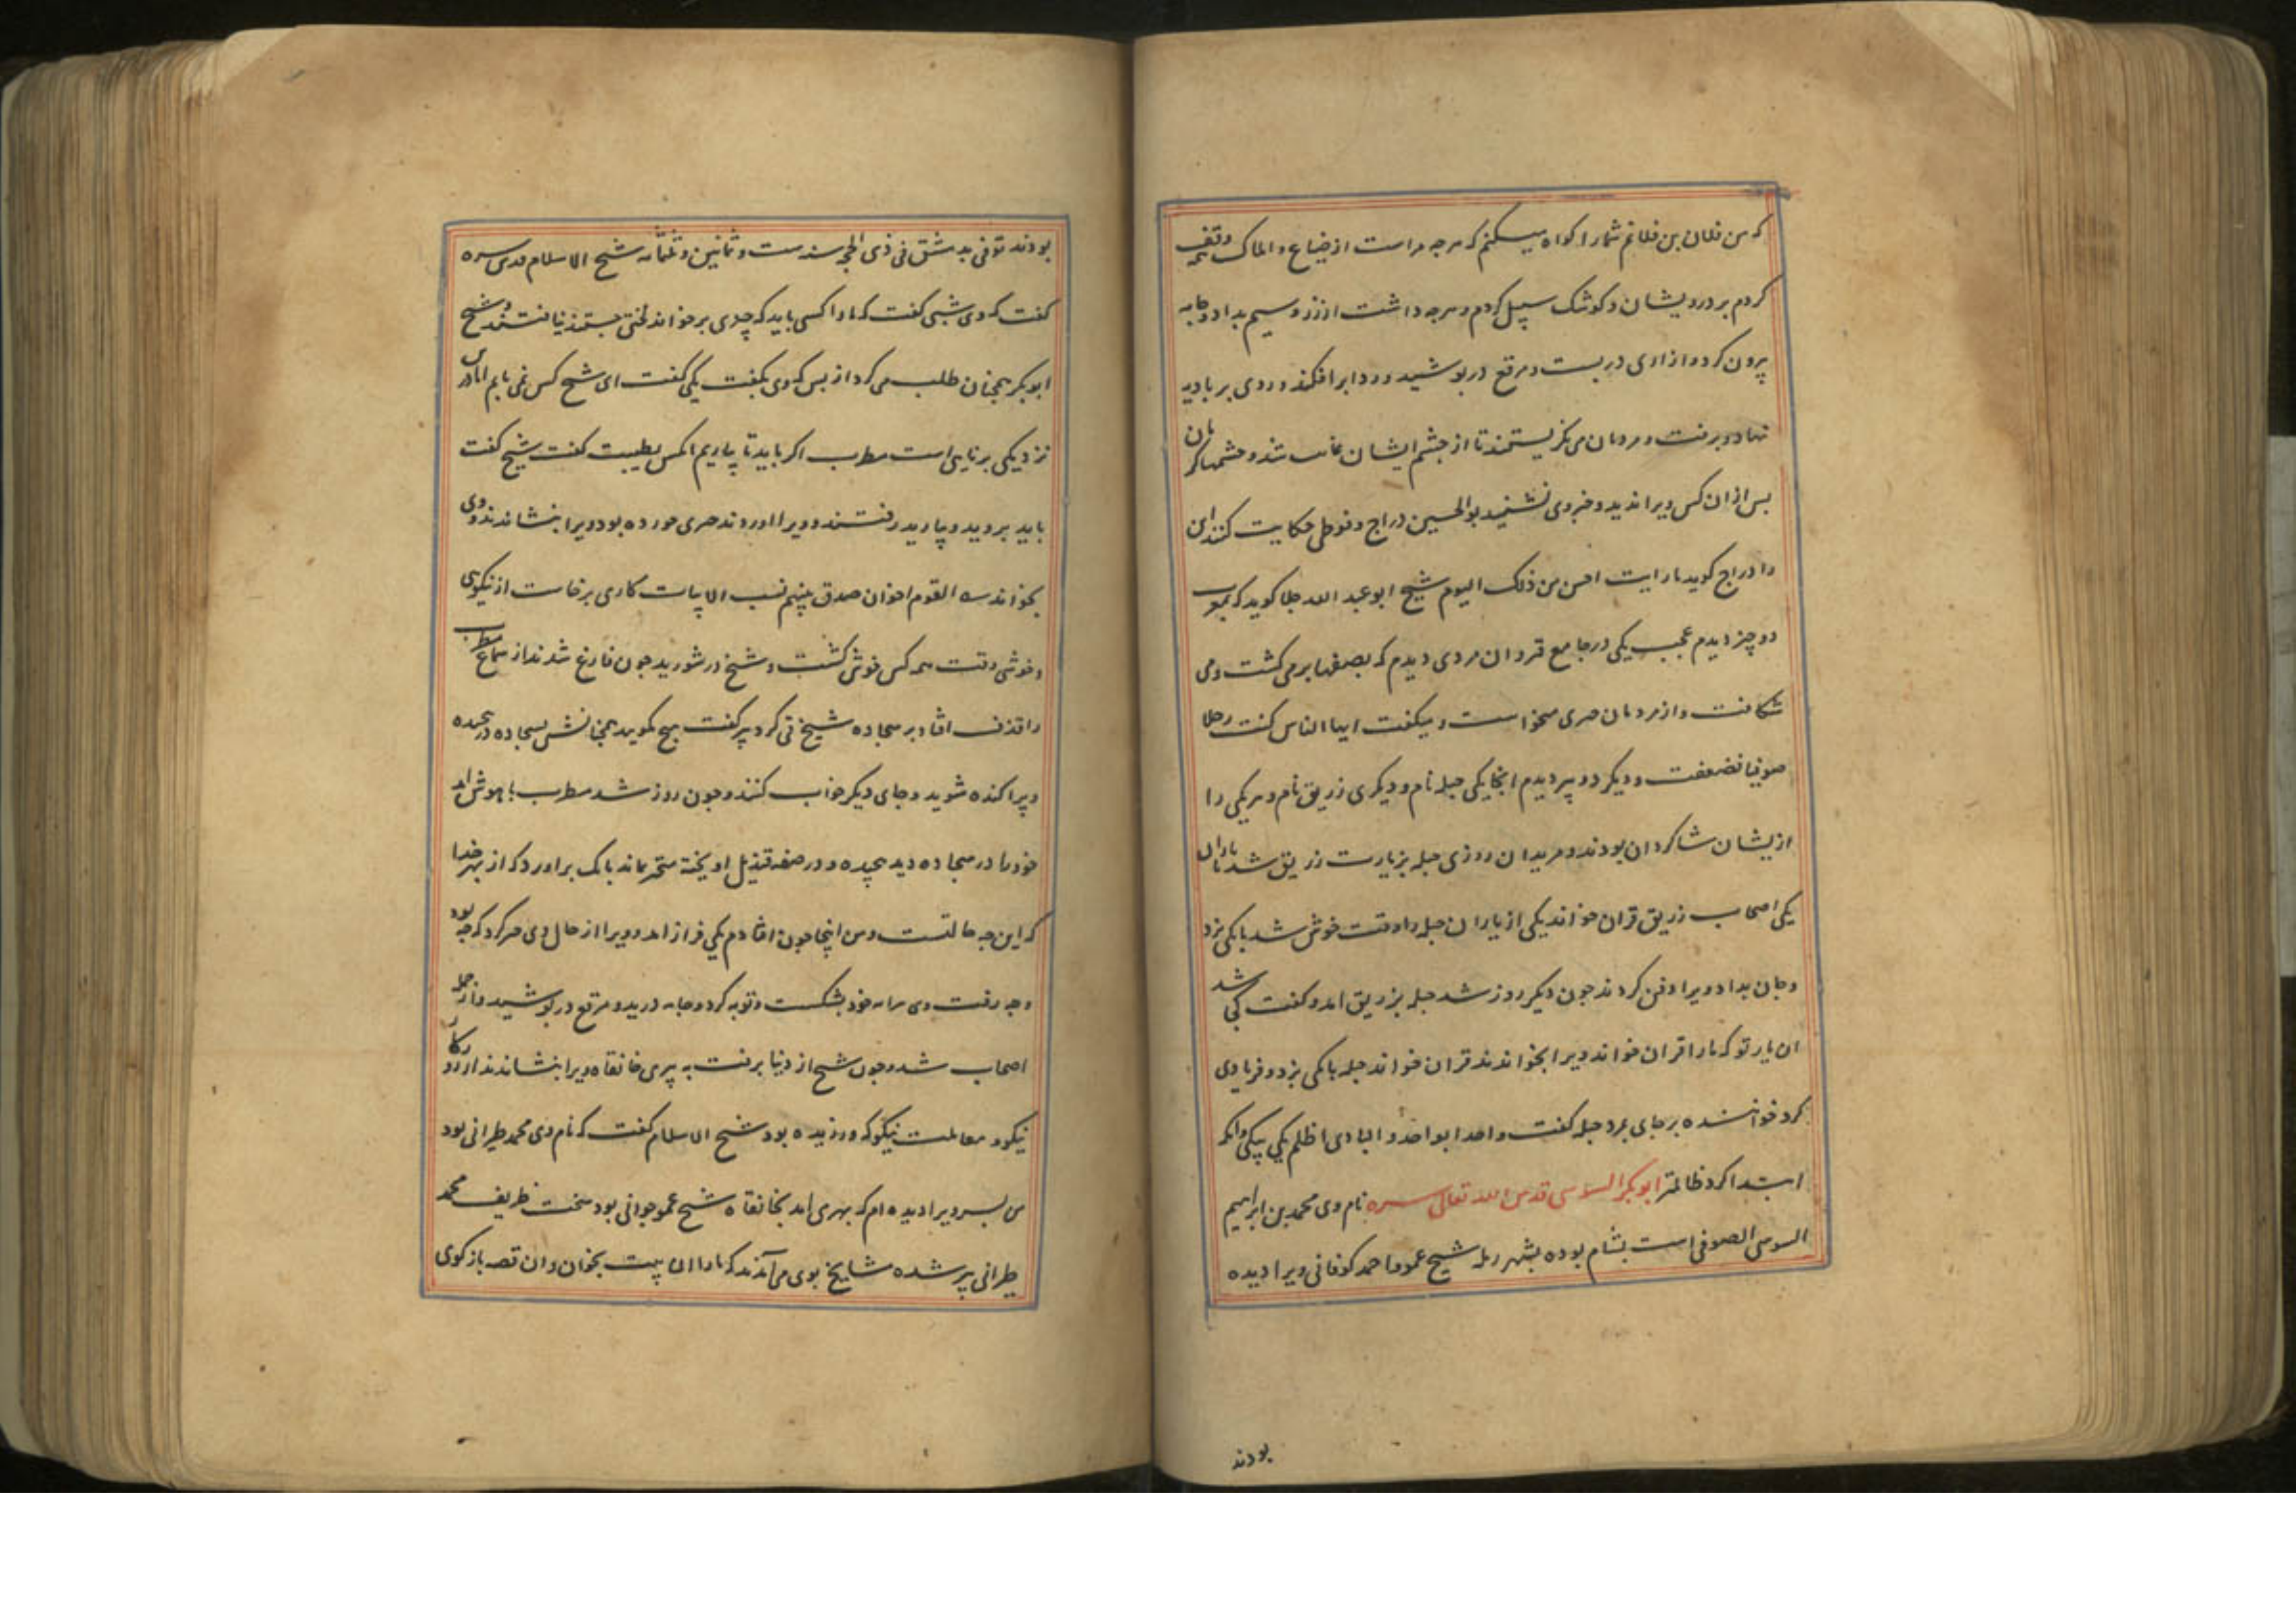 که من فلان بن فلانم شمارا کواه میکنم که هرجه مراست از ضیاع و املاک وقف
کردم بر درویشان و کوشک سبیل کردم و هرجه داشت از زر و سیم بداد و جامه
بیرون کرد و ازاری در بست و مرقع در بوشید و ردا برافکند و روی بر بادیه
نهاد و برفت و مردمان می نکریستند تا از جشم ایشان غایب شد و جشمها کریان
بس ازان کس ویرا ندید و خبر وی نشنید بوالحسین دراج و فوطی حکایت کنند این
را دراج کوید ما رایت احسن من ذلک الیوم شیخ ابو عبد الله جلا کوید که بمغرب
دو چیز دیدم عجب یکی در جامع قیروان مردی دیدم که بصفها بر می کشت و می
شکافت و از مردمان جیزی میخواست و میکفت ایها الناس کنت رجلا
صوفیا فضعفت و دیکر دو پیر دیدم انجا یکی جبله نام و دیکری زریق نام و هر یکی را
ازیشان شاکردان بودند و مریدان روزی جبله بزیارت زریق شد با یاران
یکی اصحاب زریق قران خواند یکی از یاران جبله را وقت خوش شد بانکی بزد
و جان بداد ویرا دفن کردند جون دیکر روز شد جبله بزریق امد و کفت کجا شد
ان یار تو که مارا قران خواند ویرا بخواندند قران خواند جبله بانکی بزد و فریادی
کرد خواننده بر جای بمرد جبله کفت واحد ابواحد والبادی اظلم یکی بیکی و انکه
ابتدا کرد ظالمتر ابوبکر السوسی قدس الله تعالی سره نام وی محمد بن ابراهیم
السوسی الصوفی است بشام بوده بشهر رمله شیخ عمو و احمد کوفانی ویرا دیده
بودند
بودند توفی بدمشق فی ذی الحجه سنه ست و ثمانین و ثلثمائه شیخ الاسلام قدس سره
کفت که وی شبی کفت که مارا کسی باید که چیزی برخواند لختی جستند نیافتند و شیخ
ابوبکر همچنان طلب می کرد از بس که وی بکفت یکی کفت ای شیخ کس نمی یابم اما درین
نزدیکی برنایی است مطرب اکر باید تا بیاریم انکس بطیبت کفت شیخ کفت
باید بروید و بیارید رفتند و ویرا اوردند جیزی خورده بود ویرا بنشاندند وی
بخواند سه القوم اخوان صدق بینهم نسب الابیات کاری برخاست از نیکویی
و خوشی وقت همه کس خوش کشت و شیخ در شورید جون فارغ شدند از سماع مطرب
را قذف افتاد بر سجاده شیخ قی کرد پیر کفت هیچ مکوید همچنانش بسجاده در پیچیده
و پراکنده شوید و جای دیکر خواب کنند و جون روز شد مطرب باهوش امد
خود را در سجاده دید پیچیده و در صفه قندیل اویخته متحیر بماند بانک براورد که از بهر خدا
که این جه حالتست و من اینجا جون افتادم یکی فراز امد و ویرا از حال وی خبر کرد که جه بود
و جه رفت وی سرایه خود بشکست و توبه کرد و جامه درید و مرقع در بوشید و از جمله
اصحاب شد و جون شیخ از دنیا برفت به پیری خانقاه ویرا بنشاندند از روزکار
نیکو و معاملت نیکو که ورزیده بود شیخ الاسلام کفت که نام وی محمد طبرانی بود
من بسر ویرا دیده ام که بهری امد بخانقاه شیخ عمو جوانی بود سخت ظریف محمد
طبرانی پیر شده مشایخ بوی می آمدند که مارا ان بیت بخوان و ان قصه باز کوی